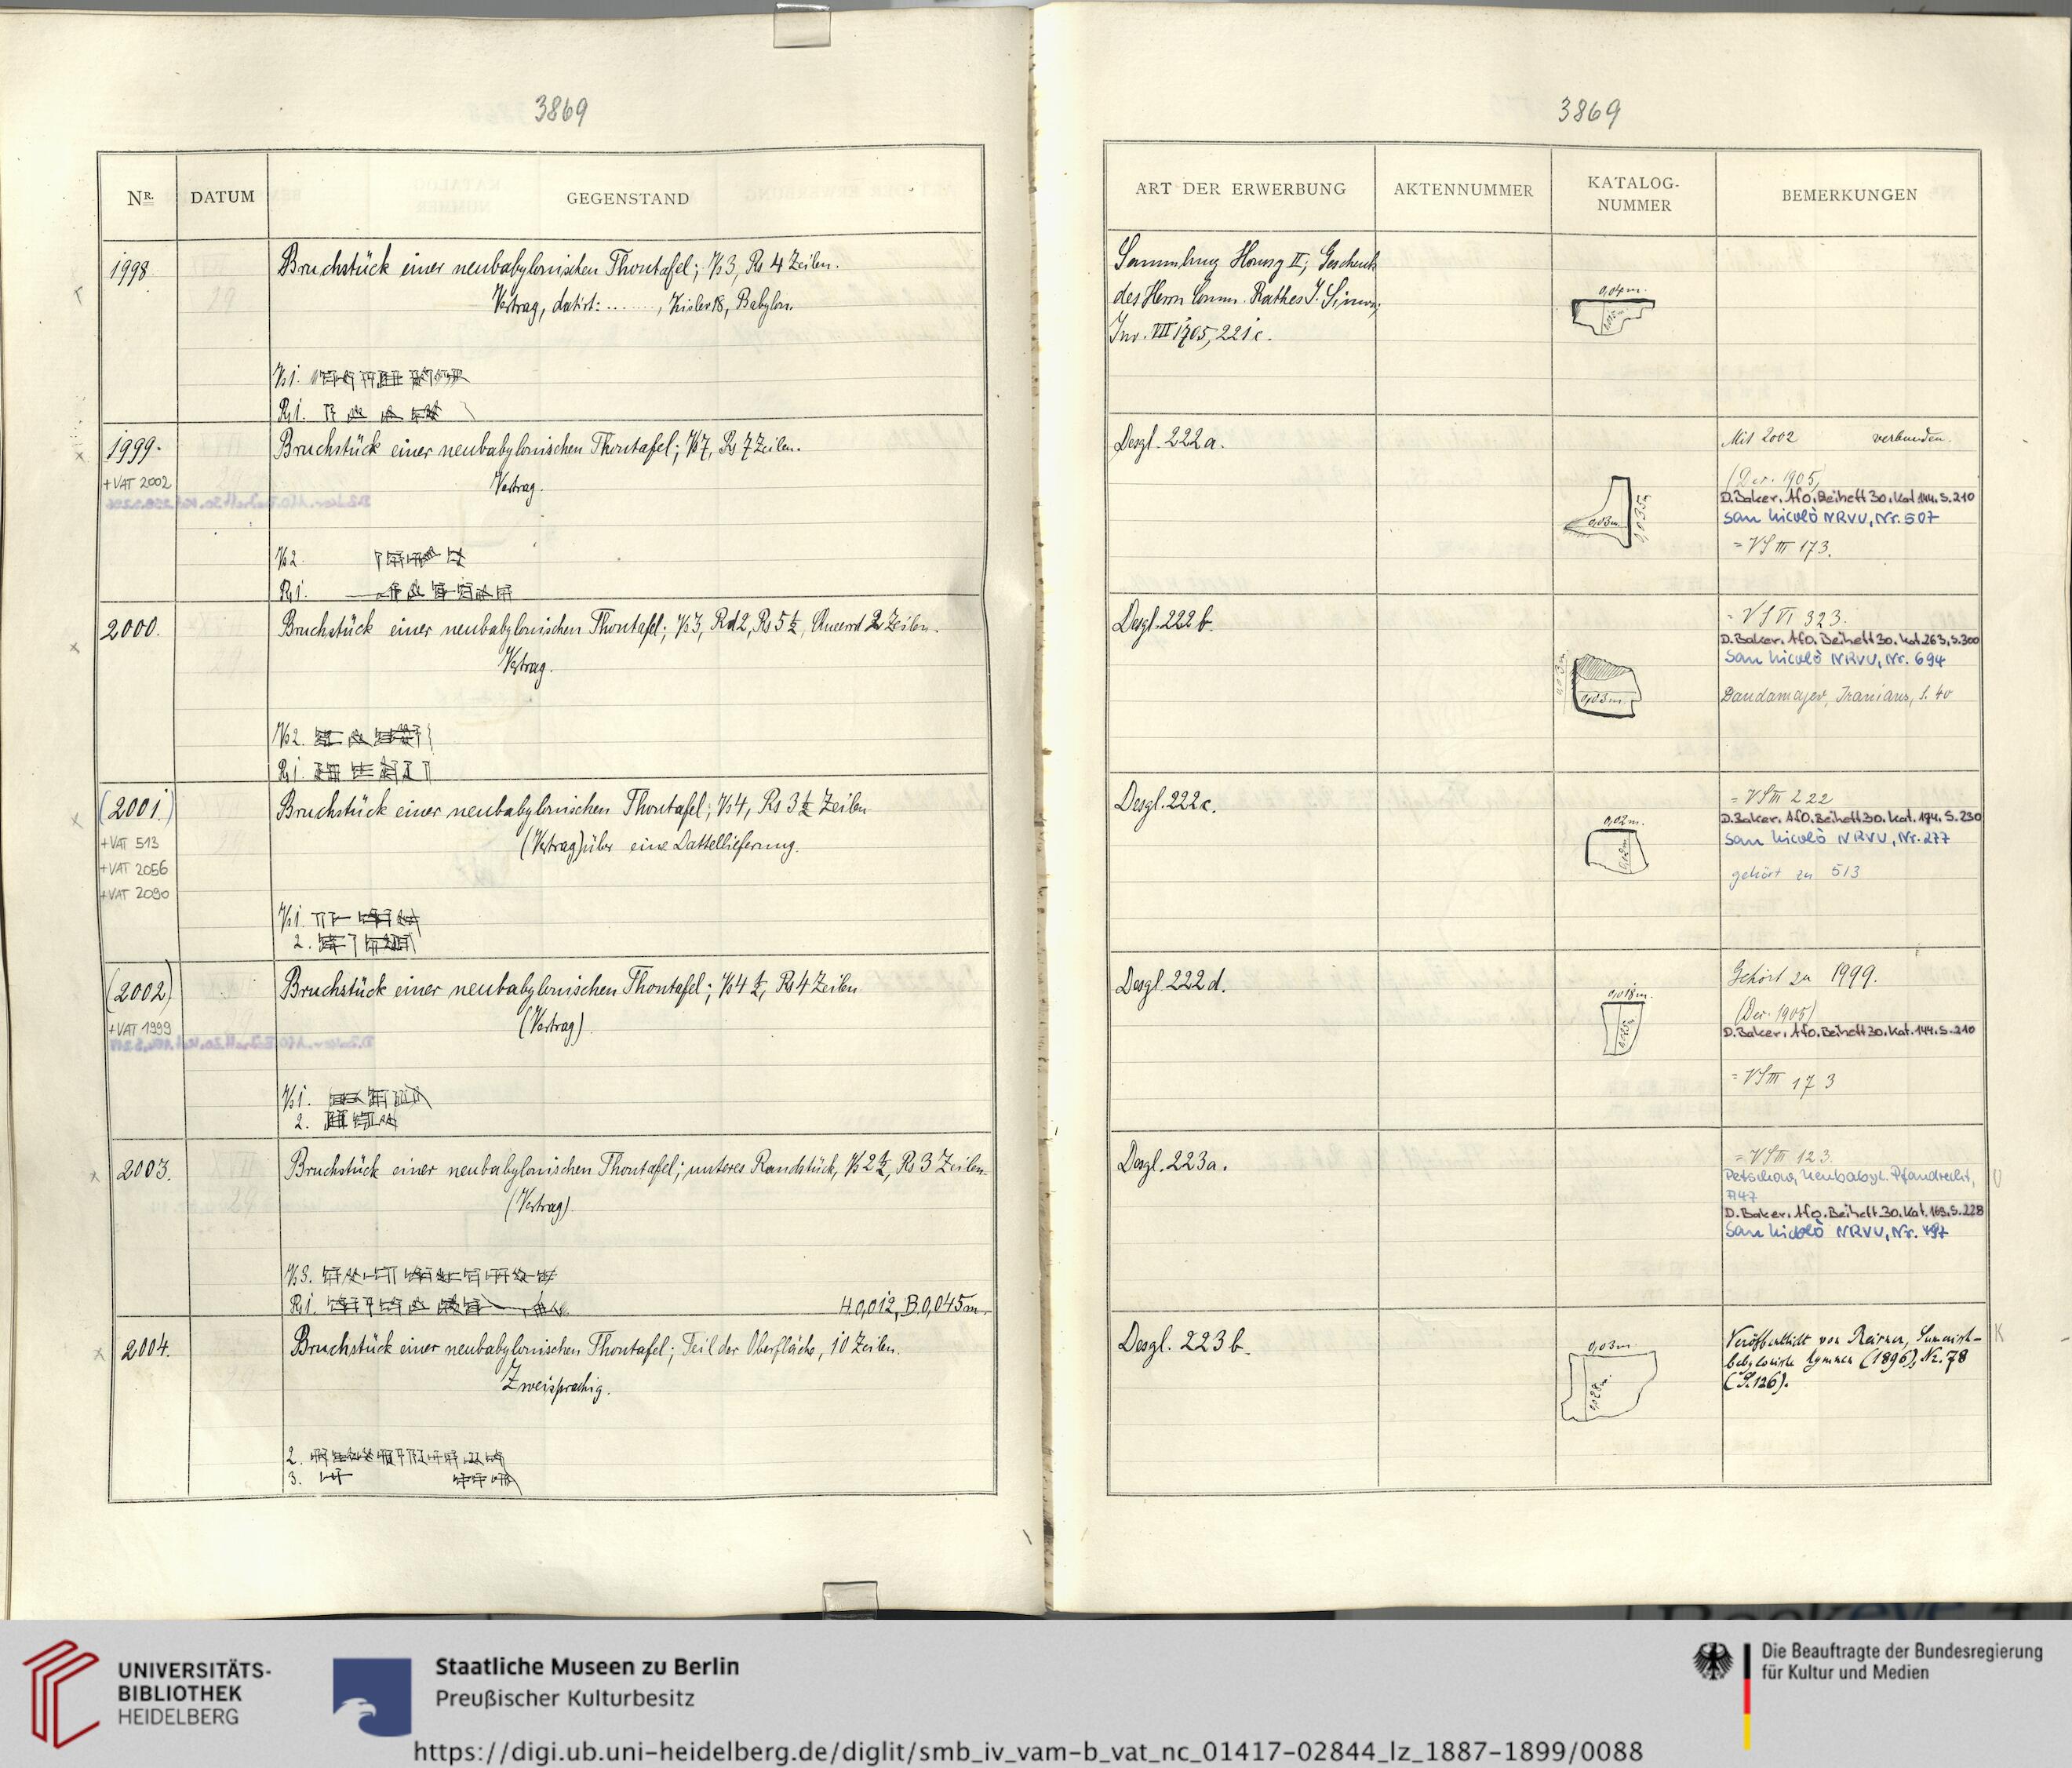 3869
Nr. DATUM GEGENSTAND
1998 Bruchstück einer neubabylonischen Thontafel; Vs 3, Rs 4 Zeilen.
Vertrag, datirt: ......., Kislev 18, Babylon.
Vs 1.
Rs 1.
1999. Bruchstück einer neubabylonischen Thontafel; Vs 7, Rs 7 Zeilen.
+VAT 2002 Vertrag.
Vs 2.
Rs 1.
2000. Bruchstück einer neubabylonischen Thontafel; Vs 3, Rd 2, Rs 5 ½, 2 Zeilen.
Vertrag.
Vs 2.
Rs 1.
(2001.) Bruchstück einer neubabylonischen Thontafel; Vs 4, Rs 3 ½ Zeilen
+VAT 513 (Vertrag) über eine Dattellieferung.
+VAT 2056
+VAT 2090
Vs 1.
2.
(2002) Bruchstück einer neubabylonischen Thontafel; Vs 4 ½, Rs 4 Zeilen
+VAT 1999 (Vertrag).
Vs 1.
2.
2003. Bruchstück einer neubabylonischen Thontafel; unteres Randstück, Vs 2 ½, Rs 3 Zeilen.
(Vertrag)
Vs 3.
Rs 1. H 0,012, B. 0,045 m.
2004. Bruchstück einer neubabylonischen Thontafel; Teil der Oberfläche, 10 Zeilen.
Zweisprachig.
2.
3.
3869
ART DER ERWERBUNG AKTENNUMMER KATALOG-
NUMMER BEMERKUNGEN
Sammlung II; Geschenk
des Herrn Comm. Rathes J. Simon;
Inv. VII 1705, 221 c.
0,04 m.
Desgl. 222 a. Mit 2002 verbunden.
(Dez. 1905)
D. Baker, AfO. Beiheft 30. Kat 144. S. 210
San Nicolò NRVU, Nr. 507
= VS III 173.
0,03 m. 0,035
Desgl. 222 b. = VS VI 323.
D. Baker, AfO. Beiheft 30. Kat. 263, S. 300
San Nicolò NRVU, Nr. 694
Dandamajev, Iranians, S. 40
0,03 m.
Desgl. 222 c. = VS III 222
D. Baker, AfO. Beiheft 30. Kat. 194. S. 230
San Nicolò NRVU, Nr. 277
gehört zu 513
0,02 m.
Desgl. 222 d. Gehört zu 1999.
(Dez. 1905)
D. Baker, AfO. Beiheft 30. Kat. 144. S. 210
= VS III 173
0,018 m.
Desgl. 223 a. = VS III 123.
Petschow, Neubabyl. Pfandrecht,
A47
D. Baker, AfO. Beiheft 30. Kat. 169. S. 228
San Nicolò NRVU, Nr. 497
Desgl. 223 b. Veröffentlicht von Reisner, Sumerisch-
babylonische Hymnen (1896), Nr. 78
(S. 126).
0,03 m.
UNIVERSITÄTS-
BIBLIOTHEK
HEIDELBERG
Staatliche Museen zu Berlin
Preußischer Kulturbesitz
Die Beauftragte der Bundesregierung
für Kultur und Medien
https://digi.ub.uni-heidelberg.de/diglit/smb_iv_vam-b_vat_nc_01417-02844_lz_1887-1899/0088